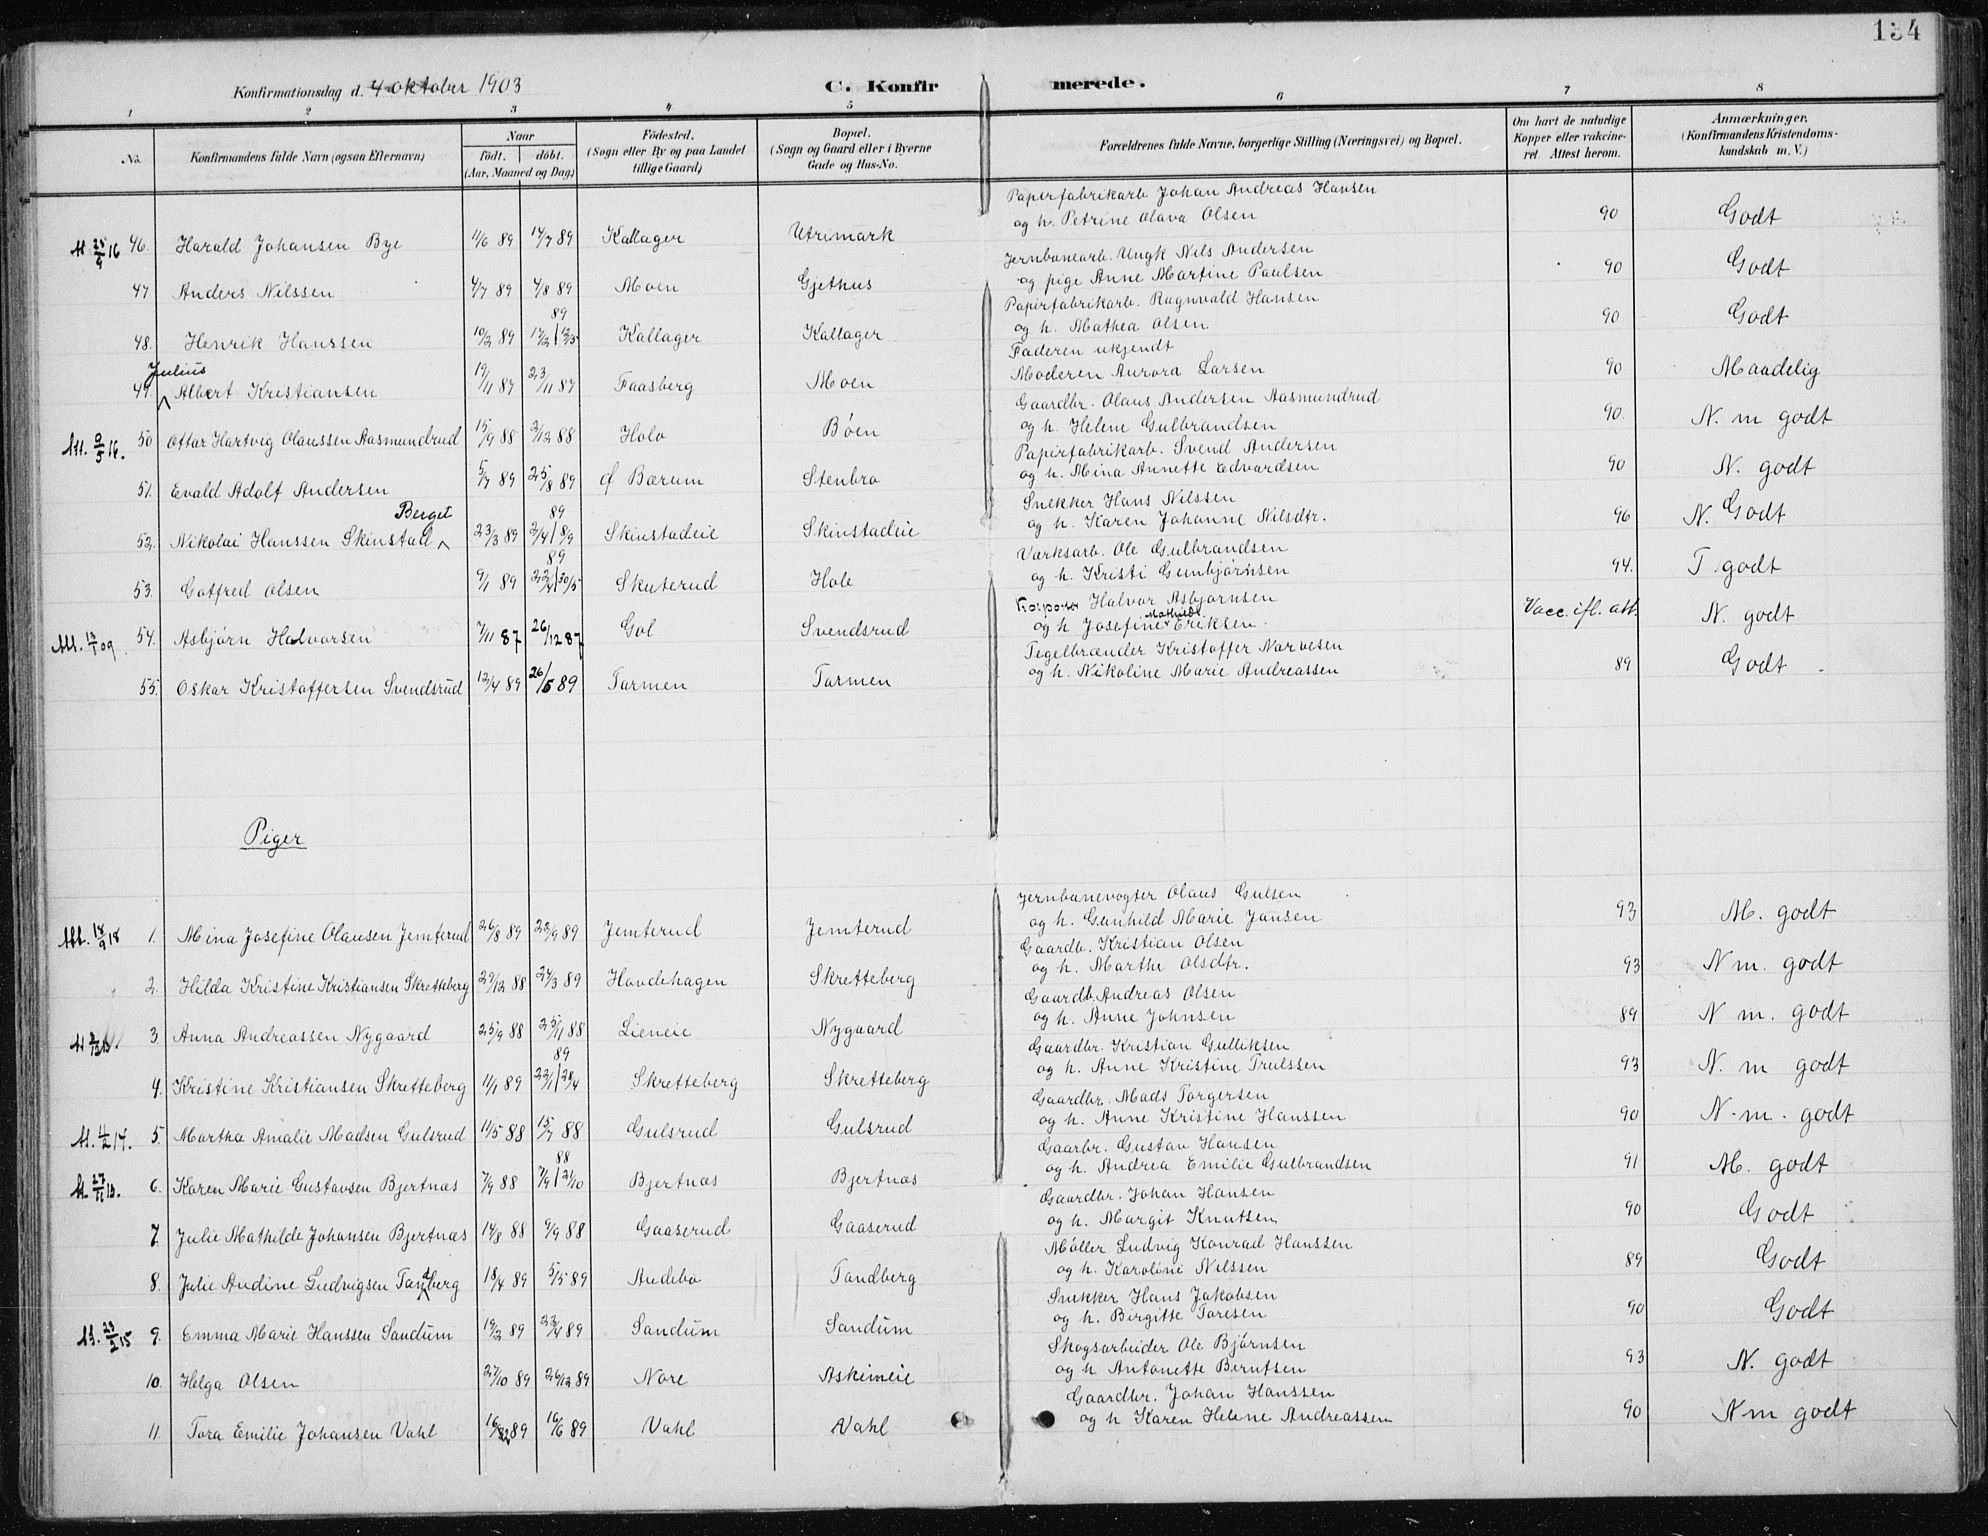 134
Konfirmationsdag d. 4 oktober 1903 C. Konfir merede.
1 2 3 4 5 6 7 8
No. Konfirmandens fulde Navn (ogsaa Efternavn) Naar født. døbt. (Aar, Maaned og Dag) Fødested. (Sogn eller By og paa Landet tillige Gaard) Bopæl. (Sogn og Gaard eller i Byerne Gade og Hus-No. Forældrenes fulde Navne, borgerlige Stilling (Næringsvei) og Bopæl. Om havt de naturlige Kopper eller vakcineret. Attest herom. Anmærkninger. (Konfirmandens Kristendomskundskab m. V.)
Papirfabrikarb. Johan Andreas Hansen
46. Harald Johansen Bye 11/6 89 14/7 89 Kallager Utrimark og h. Petrine Olava Olsen 90 Godt
Jernbanearb. Ungk Nils Andersen
47 Anders Nilssen 4/7 89 4/8 89 Moen Gjethus og pige Anne Martine Paulsen 90 Godt
Papirfabrikarb. Ragnvald Hansen
48. Henrik Hanssen 10/2 89 17/2 | 12/5 89 Kallager Kallager og h. Mathea Olsen 90 Godt
Faderen ukjendt
49. Julius Albert Kristiansen 19/11 87 23/11 87 Faasberg Moen Moderen Aurora Larsen 90 Maadelig
Gaardbr. Olaus Andersen Aasmundrud
M. 9/5 16. 50 Ottar Hartvig Olaussen Aasmundrud 15/9 88 2/12 88 Holo Bøen og h. Helene Gulbrandsen 90. N. m godt
Papirfabrikarb. Svend Andersen
51. Evald Adolf Andersen 5/7 89 25/8 89 Ø Bærum Stenbro og h. Mina Annette Edvardsen 90 N. godt
Snekker Hans Nilssen
52. Nikolai Hanssen Skinstad Berget 23/3 89 2/4 | 8/9 89 Skinstadeie Skinstadeie og h. Karen Johanne Nilsdtr. 96 N. Godt
Værksarb. Ole Gulbrandsen
53. Gotfred Olsen 9/1 89 22/4 | 30/5 89 Skuterud Hole og h. Kristi Gunbjørnsen 94. T. godt
Halvor Asbjørnsen
M. 13/1 09 54. Asbjørn Halvorsen 7/11 87 26/12 87 Gol Svendsrud og h Josefine Mathilde Eriksen. Vacc. ifl. att. N. godt
Tegelbrænder Kristoffer Narvesen
55. Oskar Kristoffersen Svendsrud 12/4 89 26/5 89 Tormen Tormen og h. Nikoline Marie Andreassen 89 Godt
Piger
Jernbanevogter Olaus Gulsen
M. 18/9 18 1. Mina Josefine Olausen Jemterud 26/8 89 22/9 89 Jemterud Jemterud og h. Gunhild Marie Jansen 93 M. godt
Gaardb. Kristian Olsen
2. Hilda Kristine Kristiansen Skretteberg 29/12 88 24/3 89 Hovdehagen Skretteberg og h. Marthe Olsdtr. 93 N m. godt
Gaardb. Andreas Olsen
3. Anna Andreassen Nygaard 25/9 88 25/11 88 Lieneie Nygaard og h. Anne Johnsen 89 N m. godt
Gaardbr. Kristian Gulliksen
4. Kristine Kristiansen Skretteberg 11/1 89 22/1 | 28/4 89 Skretteberg Skretteberg og h. Anne Kristine Trulssen 93 N. m godt
Gaardbr. Mads Torgersen
5. Martha Amalie Madsen Gulsrud 11/5 88 15/7 88 Gulsrud Gulsrud og h. Anne Kristine Hanssen 90 N. m. godt
Gaarbr. Gustav Hansen
6. Karen Marie Gustavsen Bjertnæs 7/9 88 7/9 | 21/10 88 Bjertnæs Bjertnæs og h. Andrea Emilie Gulbrandsen 91 M. godt
Gaardbr. Johan Hansen
7. Julie Mathilde Johansen Bjertnæs 14/8 88 9/9 88 Gaaserud Gaaserud og h. Margit Knutsen 90 Godt
Møller Ludvig Konrad Hanssen
8. Julie Andine Ludvigsen Tandberg 18/4 89 5/5 89 Andebo Tandberg og h. Karoline Nilssen 89 Godt
Snekker Hans Jakobsen
9. Emma Marie Hanssen Sandum 19/2 89 22/4 89 Sandum Sandum og h. Birgitte Toresen 90 Godt
Skogsarbeider Ole Bjørnsen
10. Helga Olsen 27/10 89 26/12 89 Nore Askimeie og h Antonette Berntsen 93 N. godt
Gaardbr. Johan Hanssen
11. Tora Emilie Johansen Vahl 89 16/6 89 Vahl Vahl og h Karen Helene Andreassen 90 N m godt